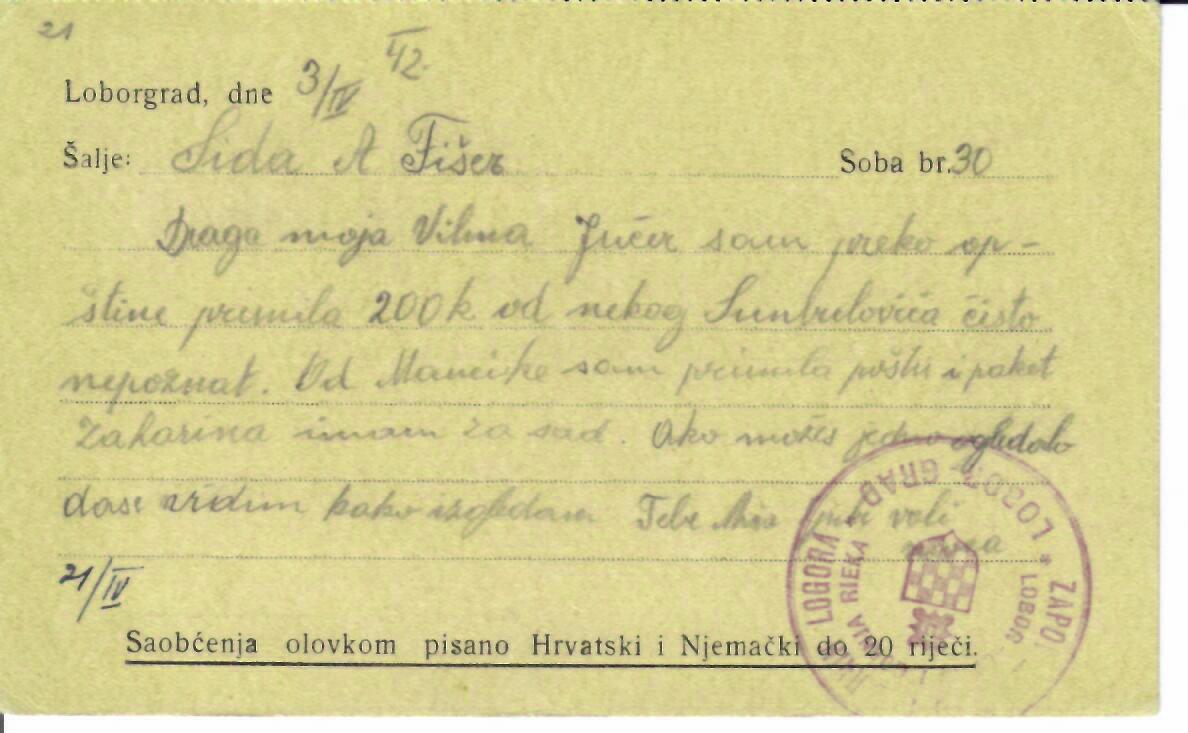 21
Loborgrad, dne 3/IV 42.
Šalje: Sida A Fišer Soba br. 30
Draga moja Vilma Jučer sam preko op-
štine primila 200k od nekog Sumbulovića čisto
nepoznat. Od Mancike sam primila poštu i paket
Zaharina imam za sad. Ako možeš jedno ogledalo
dase vidim kako izgledam Tebe ljubi voli
mama
21/IV
Saobćenja olovkom pisano Hrvatski i Njemački do 20 riječi.
ZAPO LOGORA LOBOR GRAD
LOBOR RIEKA